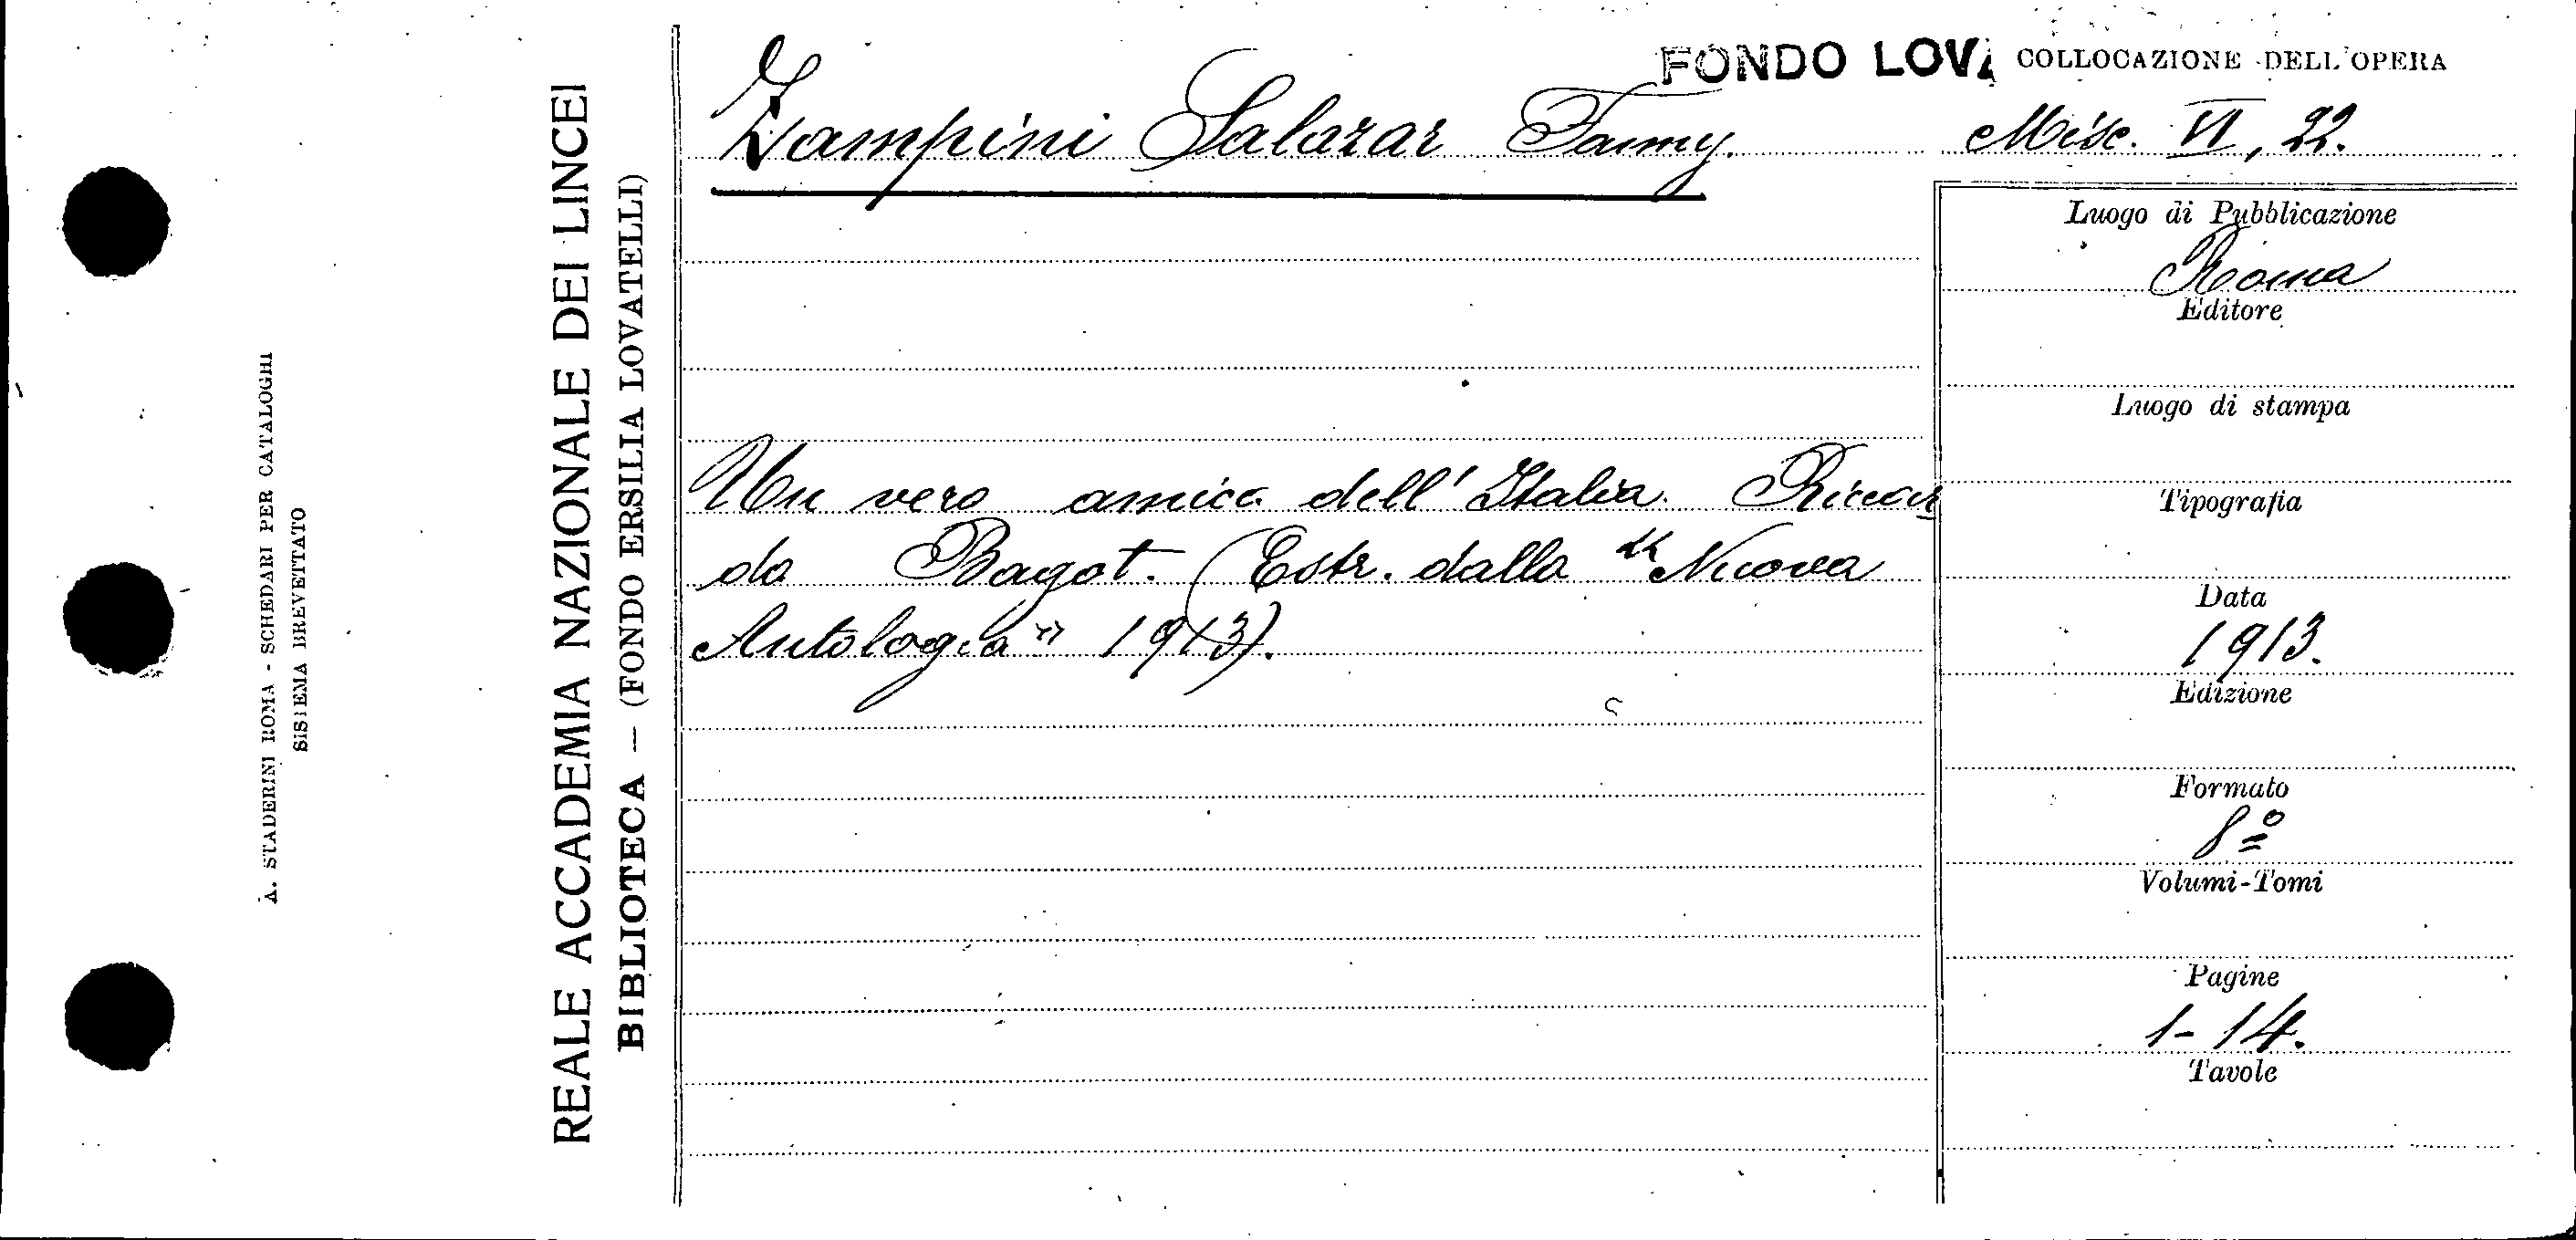 A. STADERINI ROMA - SCHEDARI PER CATALOGHI
SISTEMA BREVETTATO
REALE ACCADEMIA NAZIONALE DEI LINCEI
BIBLIOTECA — (FONDO ERSILIA LOVATELLI)
FONDO LOVA
COLLOCAZIONE DELL'OPERA
Zampini Salazar Fanny.
Misc. VI, 22.
Un vero amico dell' Italia. Riccar
do Bagot. (Estr. dalla "Nuova
Antologia" 1913).
Luogo di Pubblicazione
Roma
Editore
Luogo di stampa
Tipografia
Data
1913.
Edizione
Formato
8º
Volumi-Tomi
Pagine
1-14.
Tavole